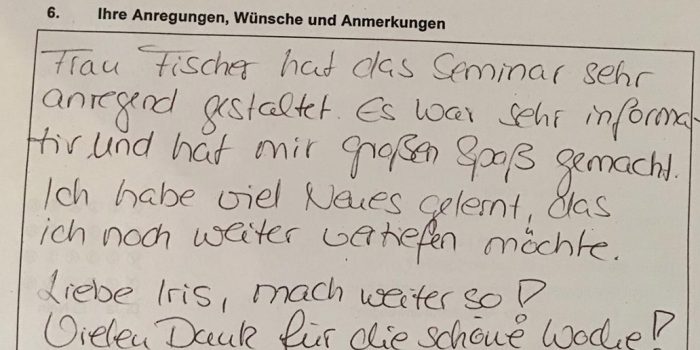 6. Ihre Anregungen, Wünsche und Anmerkungen
Frau Fischer hat das Seminar sehr
anregend gestaltet. Es war sehr informa-
tiv und hat mir großen Spaß gemacht.
Ich habe viel Neues gelernt, das
ich noch weiter vertiefen möchte.
Liebe Iris, mach weiter so!
Vielen Dank für die schöne Woche!